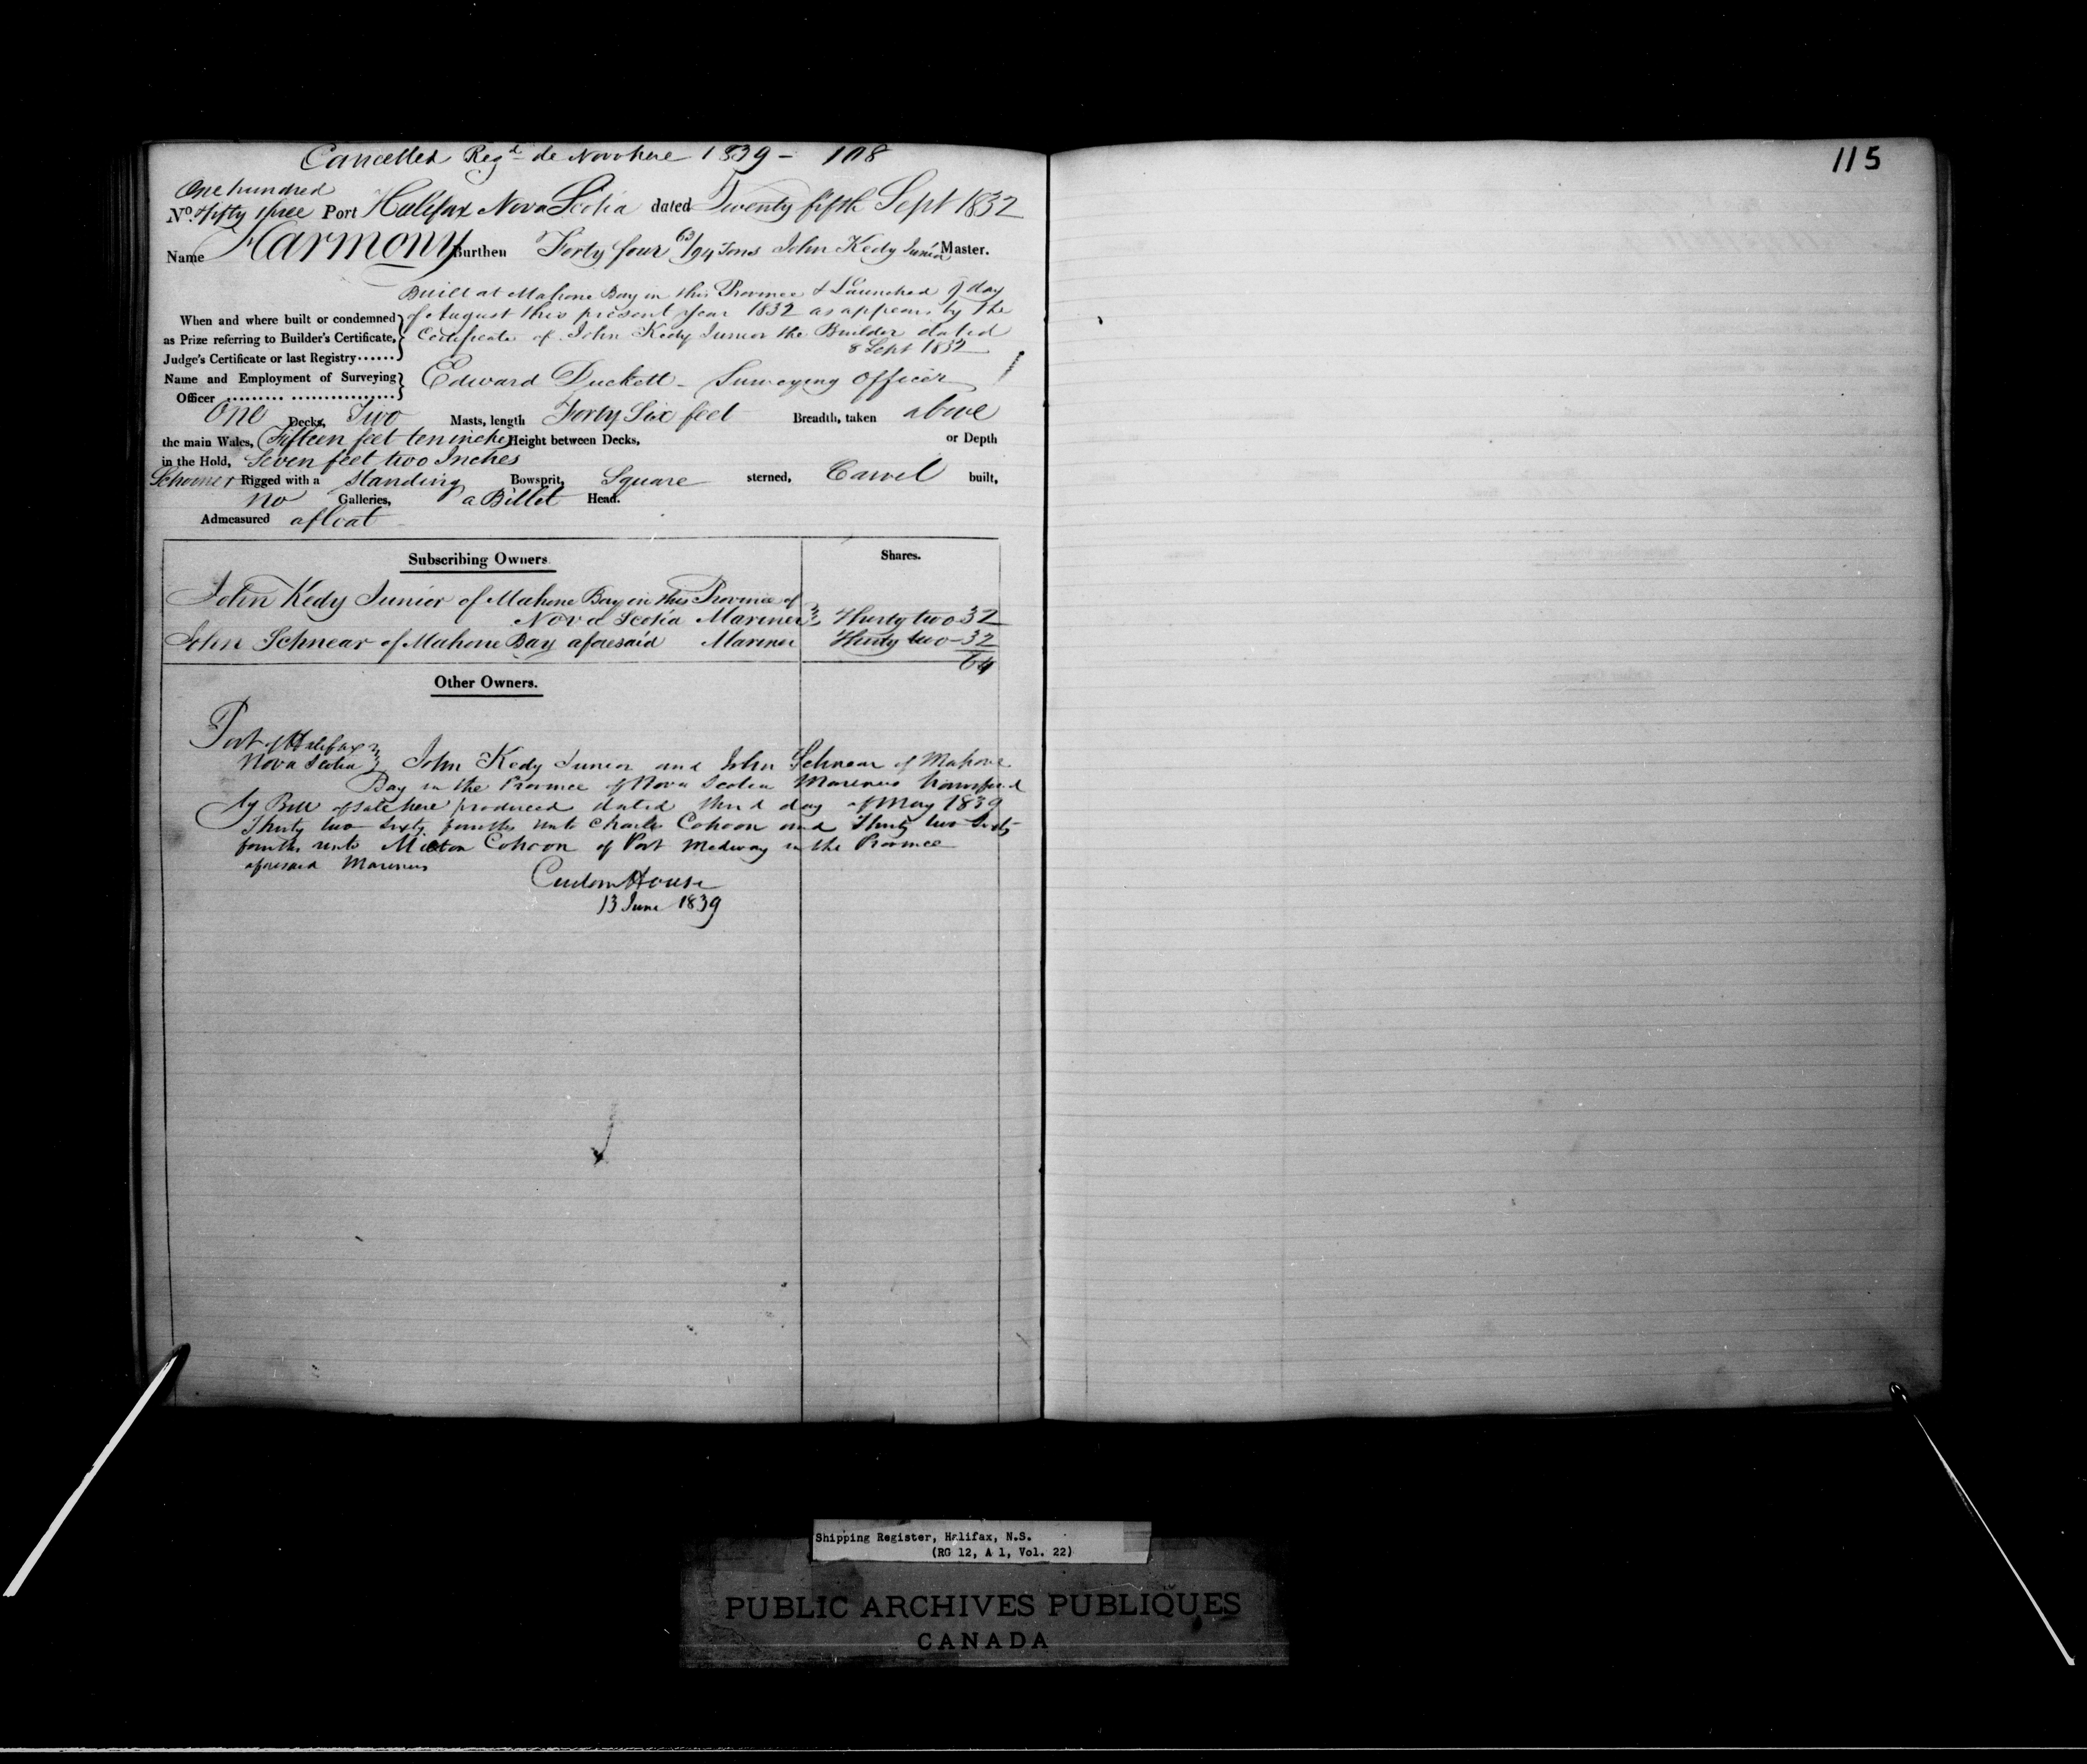 Cancelled Regd de Novo here 1839 - 108
115
One hundred
No. Fifty three Port Halifax Nova Scotia dated Twenty fifth Sept 1832
Name Harmony Burthen Forty four 63/94 Tons John Kedy Junior Master.
Built at Mahone Bay in this Province & Launched day
When and where built or condemned of August this present year 1832 as appears by the
as Prize referring to Builder's Certificate, Certificate of John Kedy Junior the Builder dated
Judge's Certificate or last Registry...... 8 Sept 1832
Name and Employment of Surveying Edward Duckett - Surveying Officer
Officer ......... ................
One Decks, Two Masts, length Forty Six feet Breadth, taken above
the main Wales, Fifteen feet ten inches Height between Decks, or Depth
in the Hold, Seven feet two Inches
Schooner Rigged with a Standing Bowsprit, Square sterned, Carvel built,
no Galleries, a Billet Head.
Admeasured afloat
Subscribing Owners. Shares.
John Kedy Junior of Mahone Bay in this Province of
Nova Scotia Mariner Thirty two 32
John Schnear of Mahone Bay aforesaid Mariner Thirty two - 32
64
Other Owners.
Port of Halifax
Nova Scotia John Kedy Junior and John Schnear of Mahone
Bay in the Province of Nova Scotia Mariners transferred
by Bill of Sale here produced dated third day of May 1839
Thirty two sixty fourths unto Charles Cohoon and Thirty two Sixty
fourths unto Cohoon of Port Medway in the Province
aforesaid Mariners
Custom House
13 June 1839
Shipping Register, Halifax, N.S.
(RG 12, A 1, Vol. 22)
PUBLIC ARCHIVES PUBLIQUES
CANADA